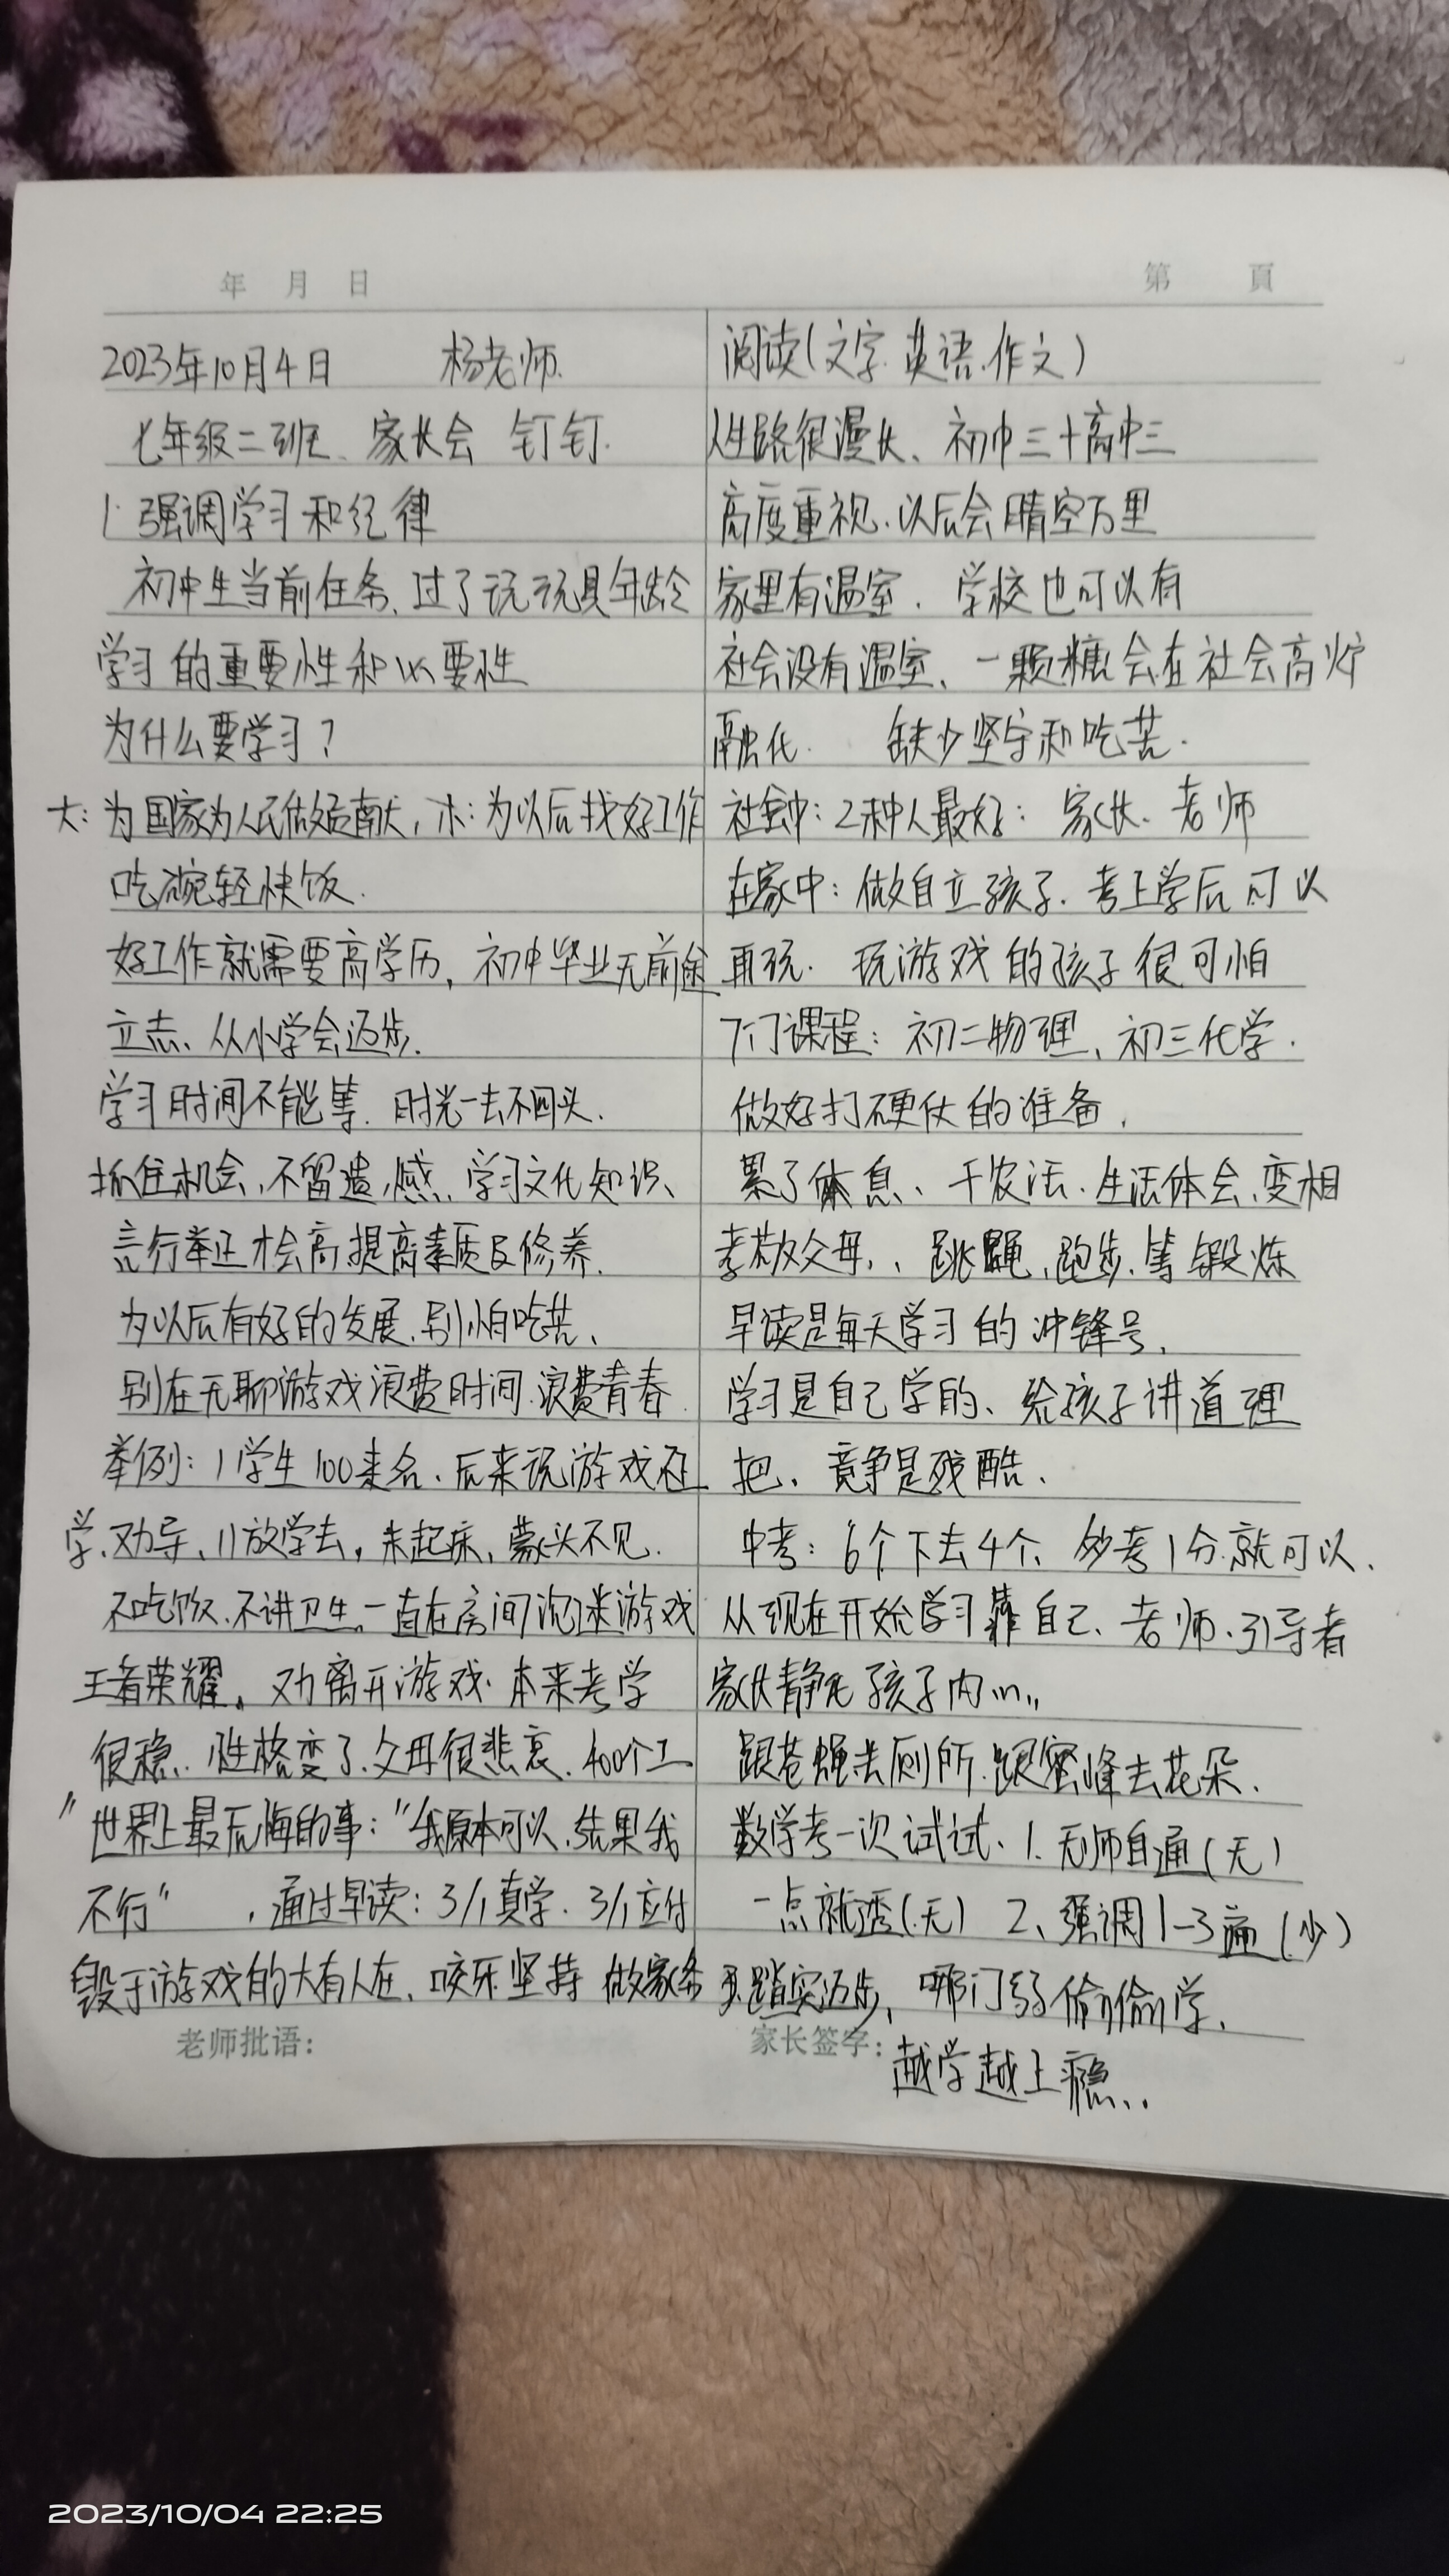 年 月 日
第 頁
2023年10月4日 杨老师.
七年级二班、家长会 钉钉.
1.强调学习和纪律
初中生当前任务、过了玩玩具年龄
学习的重要性和必要性
为什么要学习？
大:为国家为人民做贡献，小:为以后找好工作
吃碗轻快饭.
好工作就需要高学历，初中毕业无前途
立志、从小学会迈步.
学习时间不能等.时光一去不回头.
抓住机会,不留遗憾.学习文化知识、
言行举止才会高提高素质及修养.
为以后有好的发展.别怕吃苦、
别在无聊游戏浪费时间.浪费青春.
举例:1学生100来名.后来玩游戏不
学.劝导、11放学去，未起床,蒙头不见.
不吃饭.不讲卫生.一直在房间沉迷游戏
王者荣耀。劝离开游戏.本来考学
很稳..性格变了.父母很悲哀.400个工
"世界上最后悔的事:"我原本可以.结果我
不行" ,通过早读:3/1真学.3/1应付
毁于游戏的大有人在.咬牙坚持 做家务
阅读(文字.英语.作文)
人生路很漫长、初中三+高中三
高度重视.以后会晴空万里
家里有温室. 学校也可以有
社会没有温室、一颗糖会在社会高炉
融化. 缺少坚守和吃苦.
社会中:2种人最好: 家长、老师
在家中:做自立孩子.考上学后可以
再玩. 玩游戏的孩子很可怕
7门课程:初二物理、初三化学.
做好打硬仗的准备.
累了休息、干农活.生活体会、变相
孝敬父母,、跳绳、跑步.等锻炼
早读是每天学习的冲锋号.
学习是自己学的、给孩子讲道理
把、竞争是残酷.
中考:6个下去4个、多考1分.就可以.
从现在开始学习靠自己、老师.引导者
家长静化孩子内心,,
跟苍蝇去厕所.跟蜜峰去花朵.
数学考一次试试、1.无师自通(无)
一点就透(无) 2、强调1-3遍(少)
踏实迈步,哪门弱偷偷学.
越学越上瘾..
老师批语：
家长签字：
2023/10/04 22:25